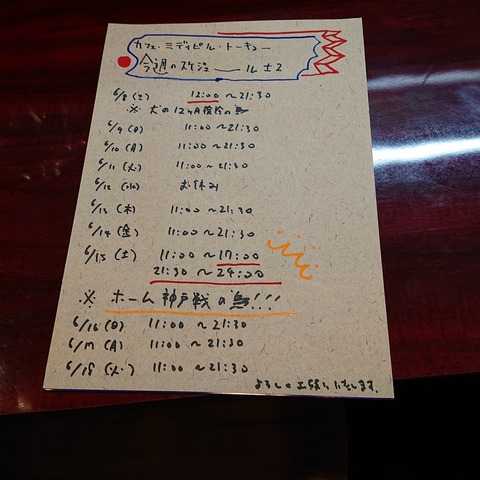 カフェ・ミディピル・トーキュー
今週のスケジュールだヨ
6/8(土) 12:00〜21:30
※ 犬の12ヶ月検診の為
6/9(日) 11:00〜21:30
6/10(月) 11:00〜21:30
6/11(火) 11:00〜21:30
6/12(水) お休み
6/13(木) 11:00〜21:30
6/14(金) 11:00〜21:30
6/15(土) 11:00〜17:00
21:30〜24:00
※ ホーム神戸戦の為!!!
6/16(日) 11:00〜21:30
6/17(月) 11:00〜21:30
6/18(火) 11:00〜21:30
よろしくお願いいたします。